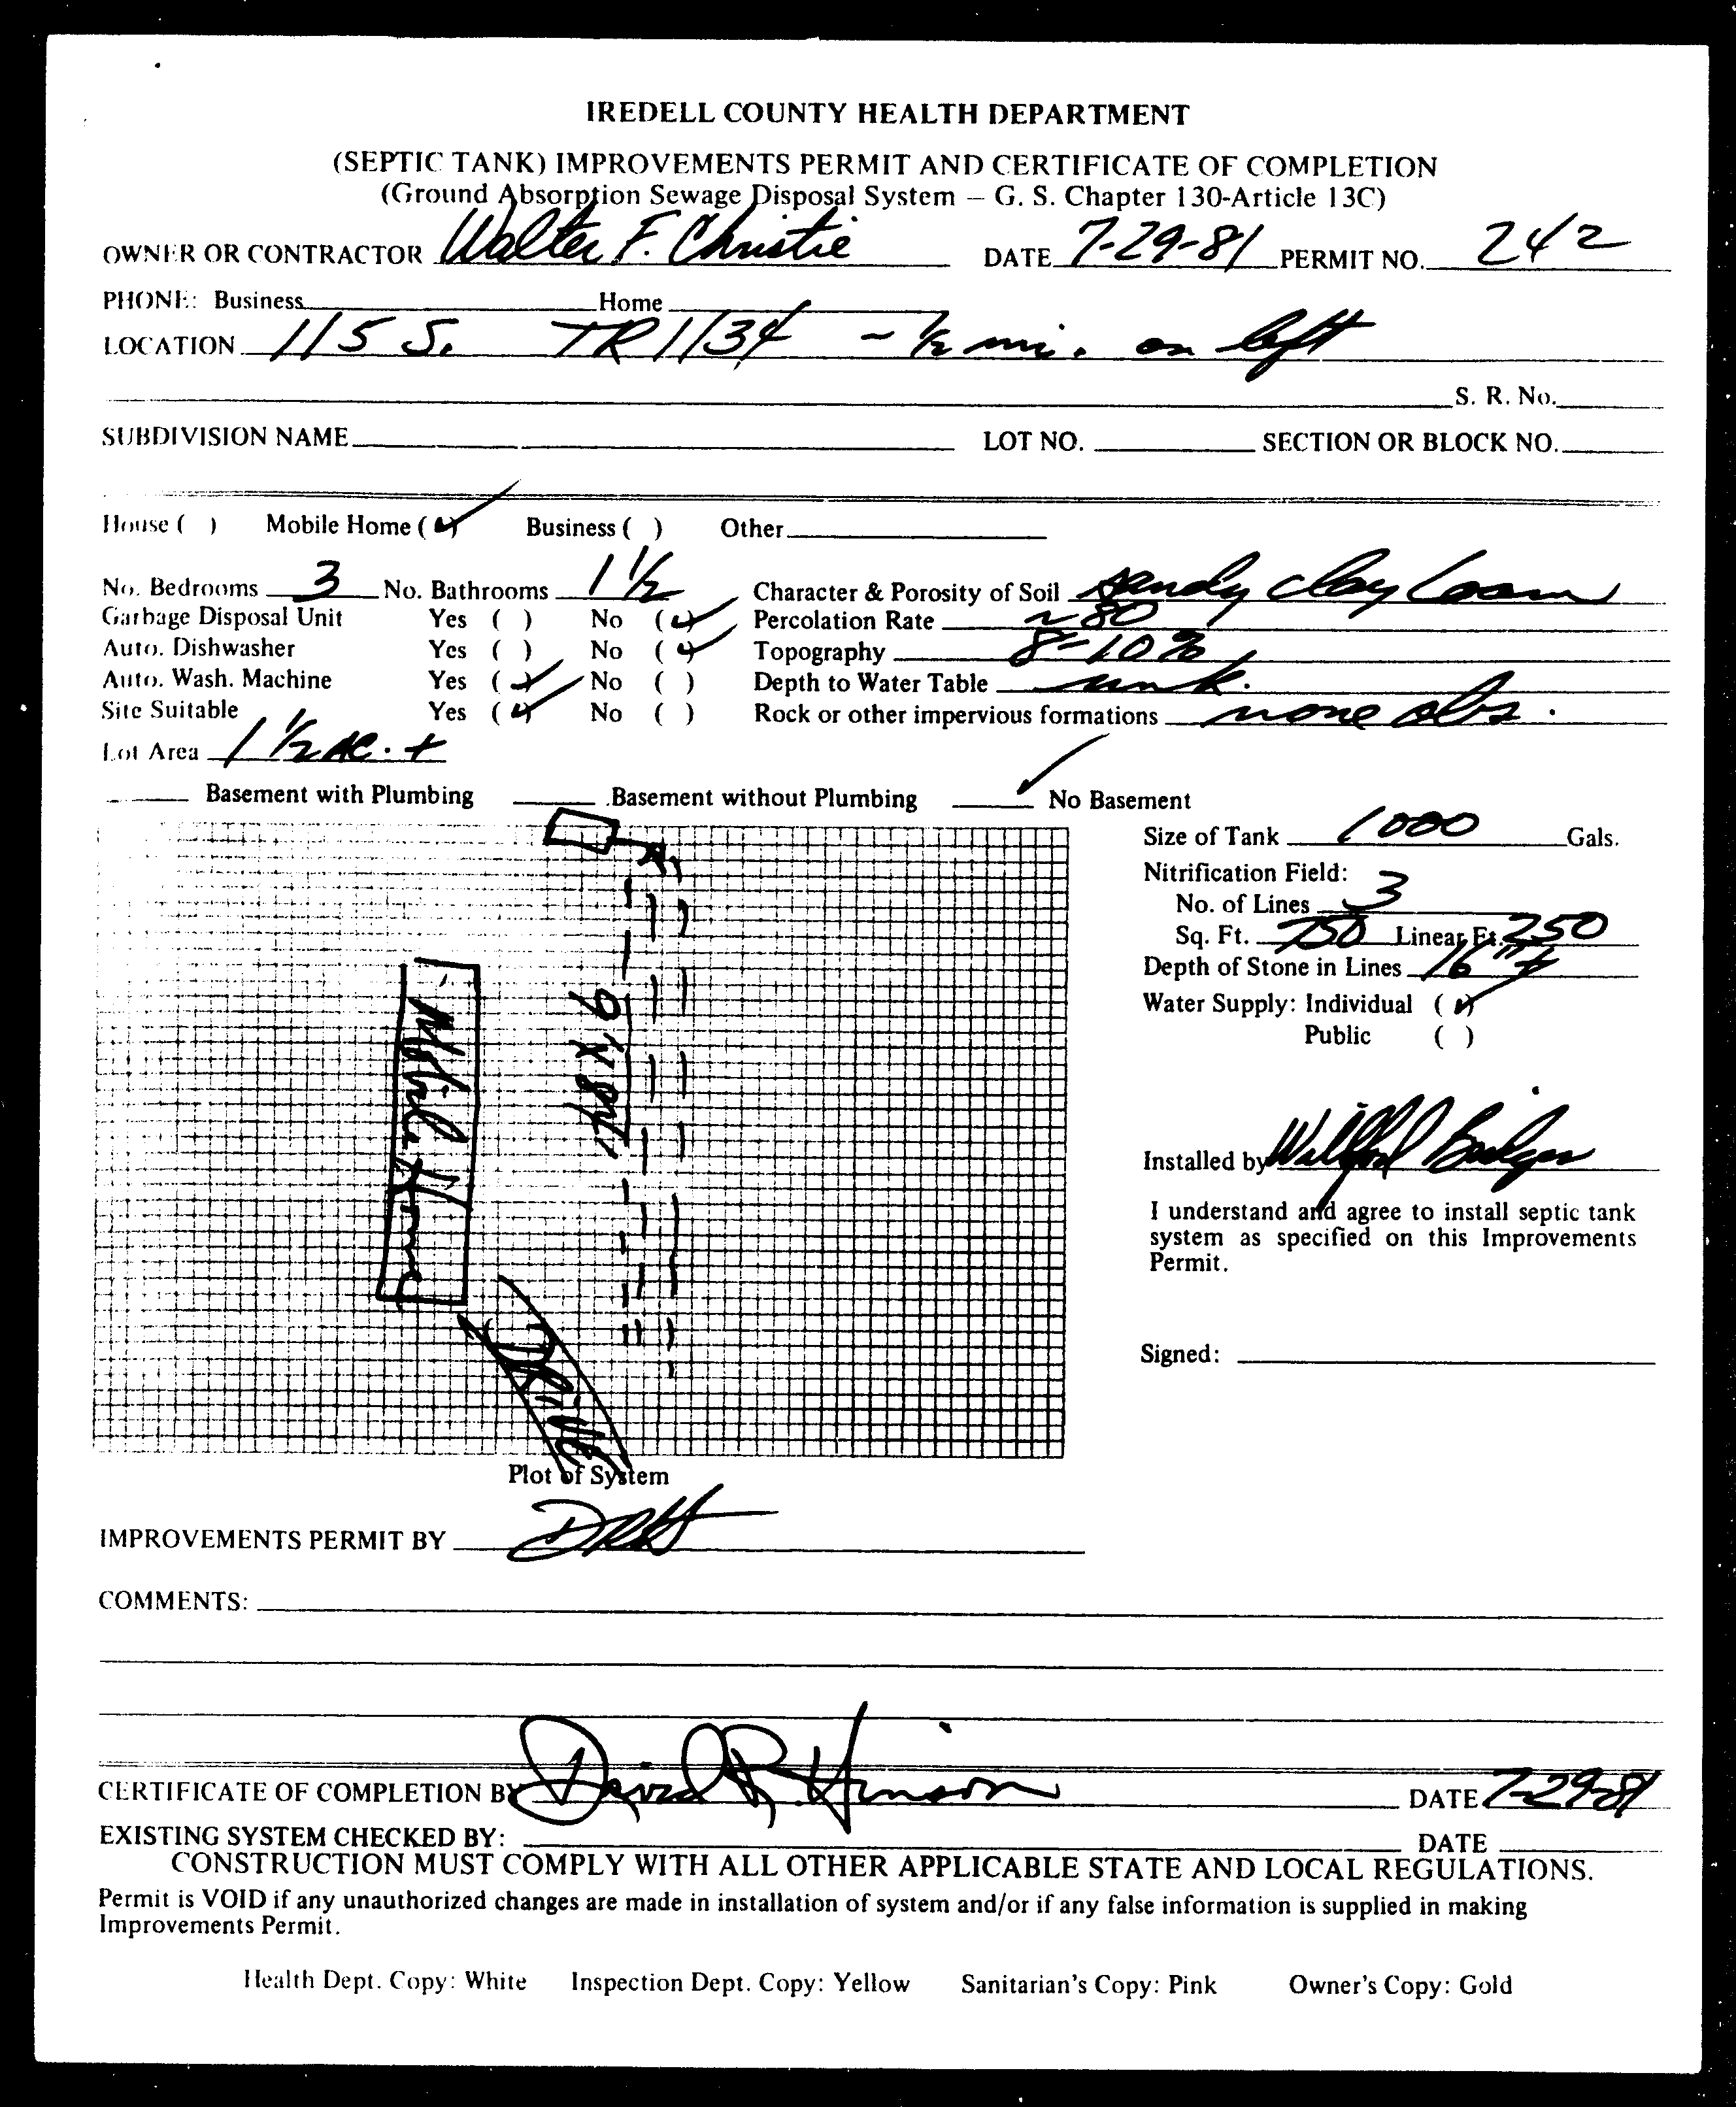 IREDELL COUNTY HEALTH DEPARTMENT
(SEPTIC TANK) IMPROVEMENTS PERMIT AND CERTIFICATE OF COMPLETION
(Ground Absorption Sewage Disposal System — G. S. Chapter 130-Article 13C)
OWNER OR CONTRACTOR Walter F. Christie DATE 7-29-81 PERMIT NO. 242
PHONE: Business Home
LOCATION 115 S. TR 1134 ~ 1/2 mi. on left
S. R. No.
SUBDIVISION NAME LOT NO. SECTION OR BLOCK NO.
House ( ) Mobile Home (✓) Business ( ) Other
No. Bedrooms 3 No. Bathrooms 1 1/2 Character & Porosity of Soil sandy clay loam
Garbage Disposal Unit Yes ( ) No (✓) Percolation Rate ~ 80
Auto. Dishwasher Yes ( ) No (✓) Topography 8-10%
Auto. Wash. Machine Yes (✓) No ( ) Depth to Water Table unk.
Site Suitable Yes (✓) No ( ) Rock or other impervious formations none obs.
Lot Area 1 1/2 AC. +
Basement with Plumbing Basement without Plumbing ✓ No Basement
Size of Tank 1000 Gals.
Nitrification Field:
No. of Lines 3
Sq. Ft. 750 Linear Ft. 250
Depth of Stone in Lines 16" +
Water Supply: Individual (✓)
Public ( )
Mobile Home
DRIVE
Installed by
I understand and agree to install septic tank
system as specified on this Improvements
Permit.
Signed:
Plot of System
IMPROVEMENTS PERMIT BY DRH
COMMENTS:
CERTIFICATE OF COMPLETION BY David R. Hinson DATE 7-29-81
EXISTING SYSTEM CHECKED BY: DATE
CONSTRUCTION MUST COMPLY WITH ALL OTHER APPLICABLE STATE AND LOCAL REGULATIONS.
Permit is VOID if any unauthorized changes are made in installation of system and/or if any false information is supplied in making
Improvements Permit.
Health Dept. Copy: White Inspection Dept. Copy: Yellow Sanitarian's Copy: Pink Owner's Copy: Gold